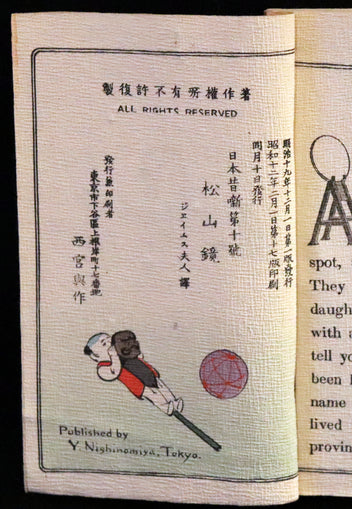 著作權所有不許復製
ALL RIGHTS RESERVED
明治十九年十二月一日第一版發行
昭和十二年二月一日第十七版印刷
同月十日發行
日本昔噺第十號
松山鏡
ジエイムス夫人譯
發行兼印刷者
東京市下谷區上根岸町十七番地
西宮與作
Published by
Y. Nishinomiya, Tokyo.
spot,
They
daugh
with a
tell yo
been h
name
lived
provin